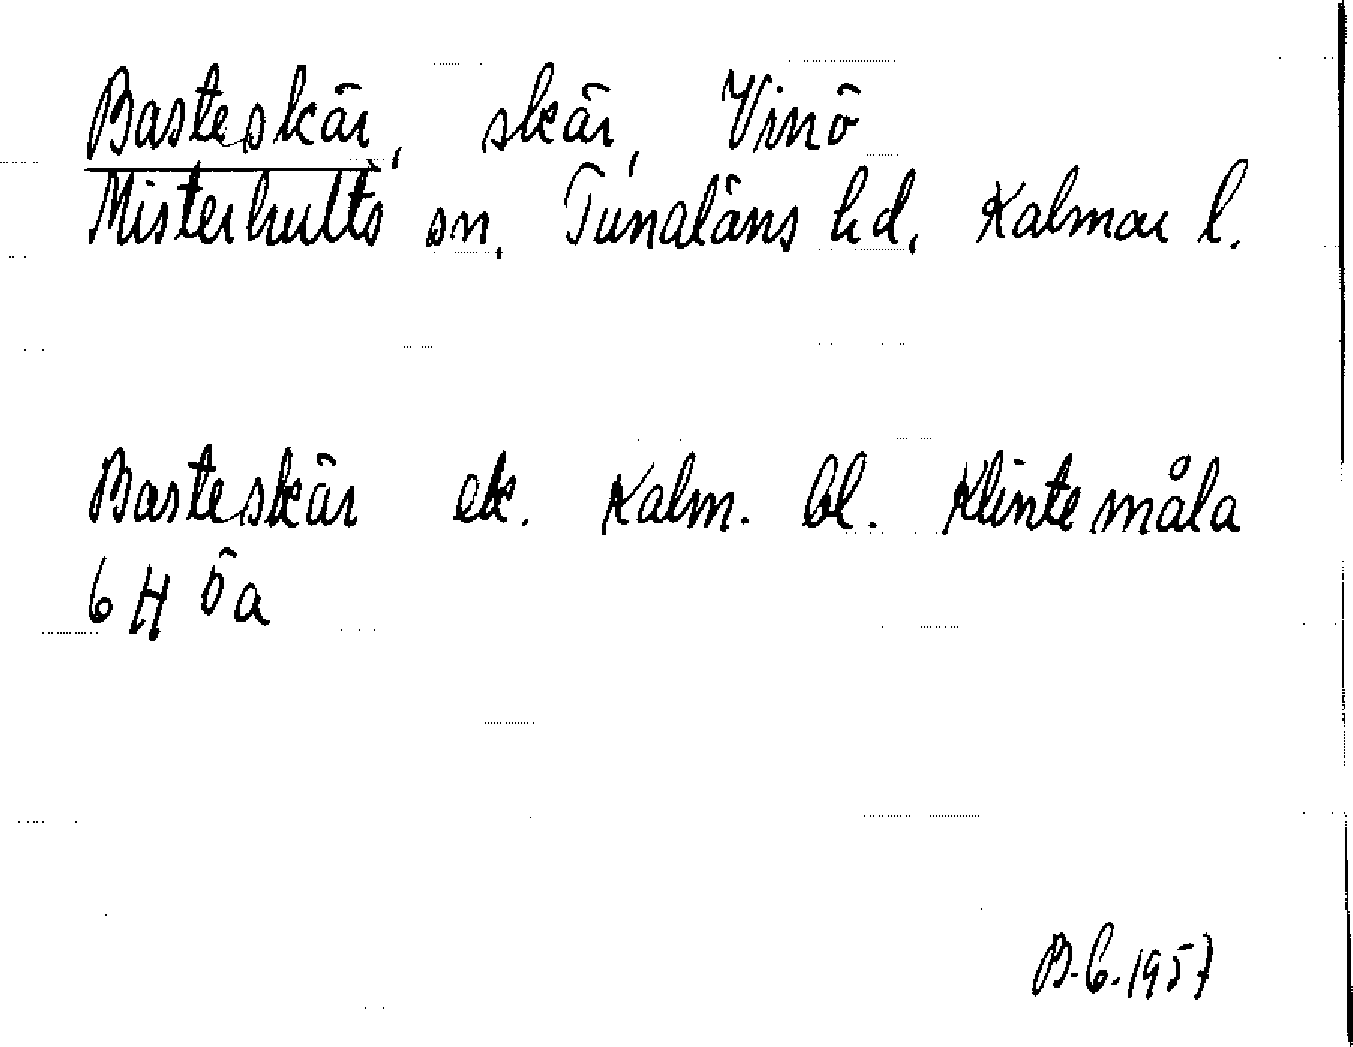 Basteskär, skär, Vinö
Misterhults sn, Tunaläns hd, Kalmar l.
Basteskär ek. Kalm. bl. Klintemåla
6 H Öa
B.C. 1957